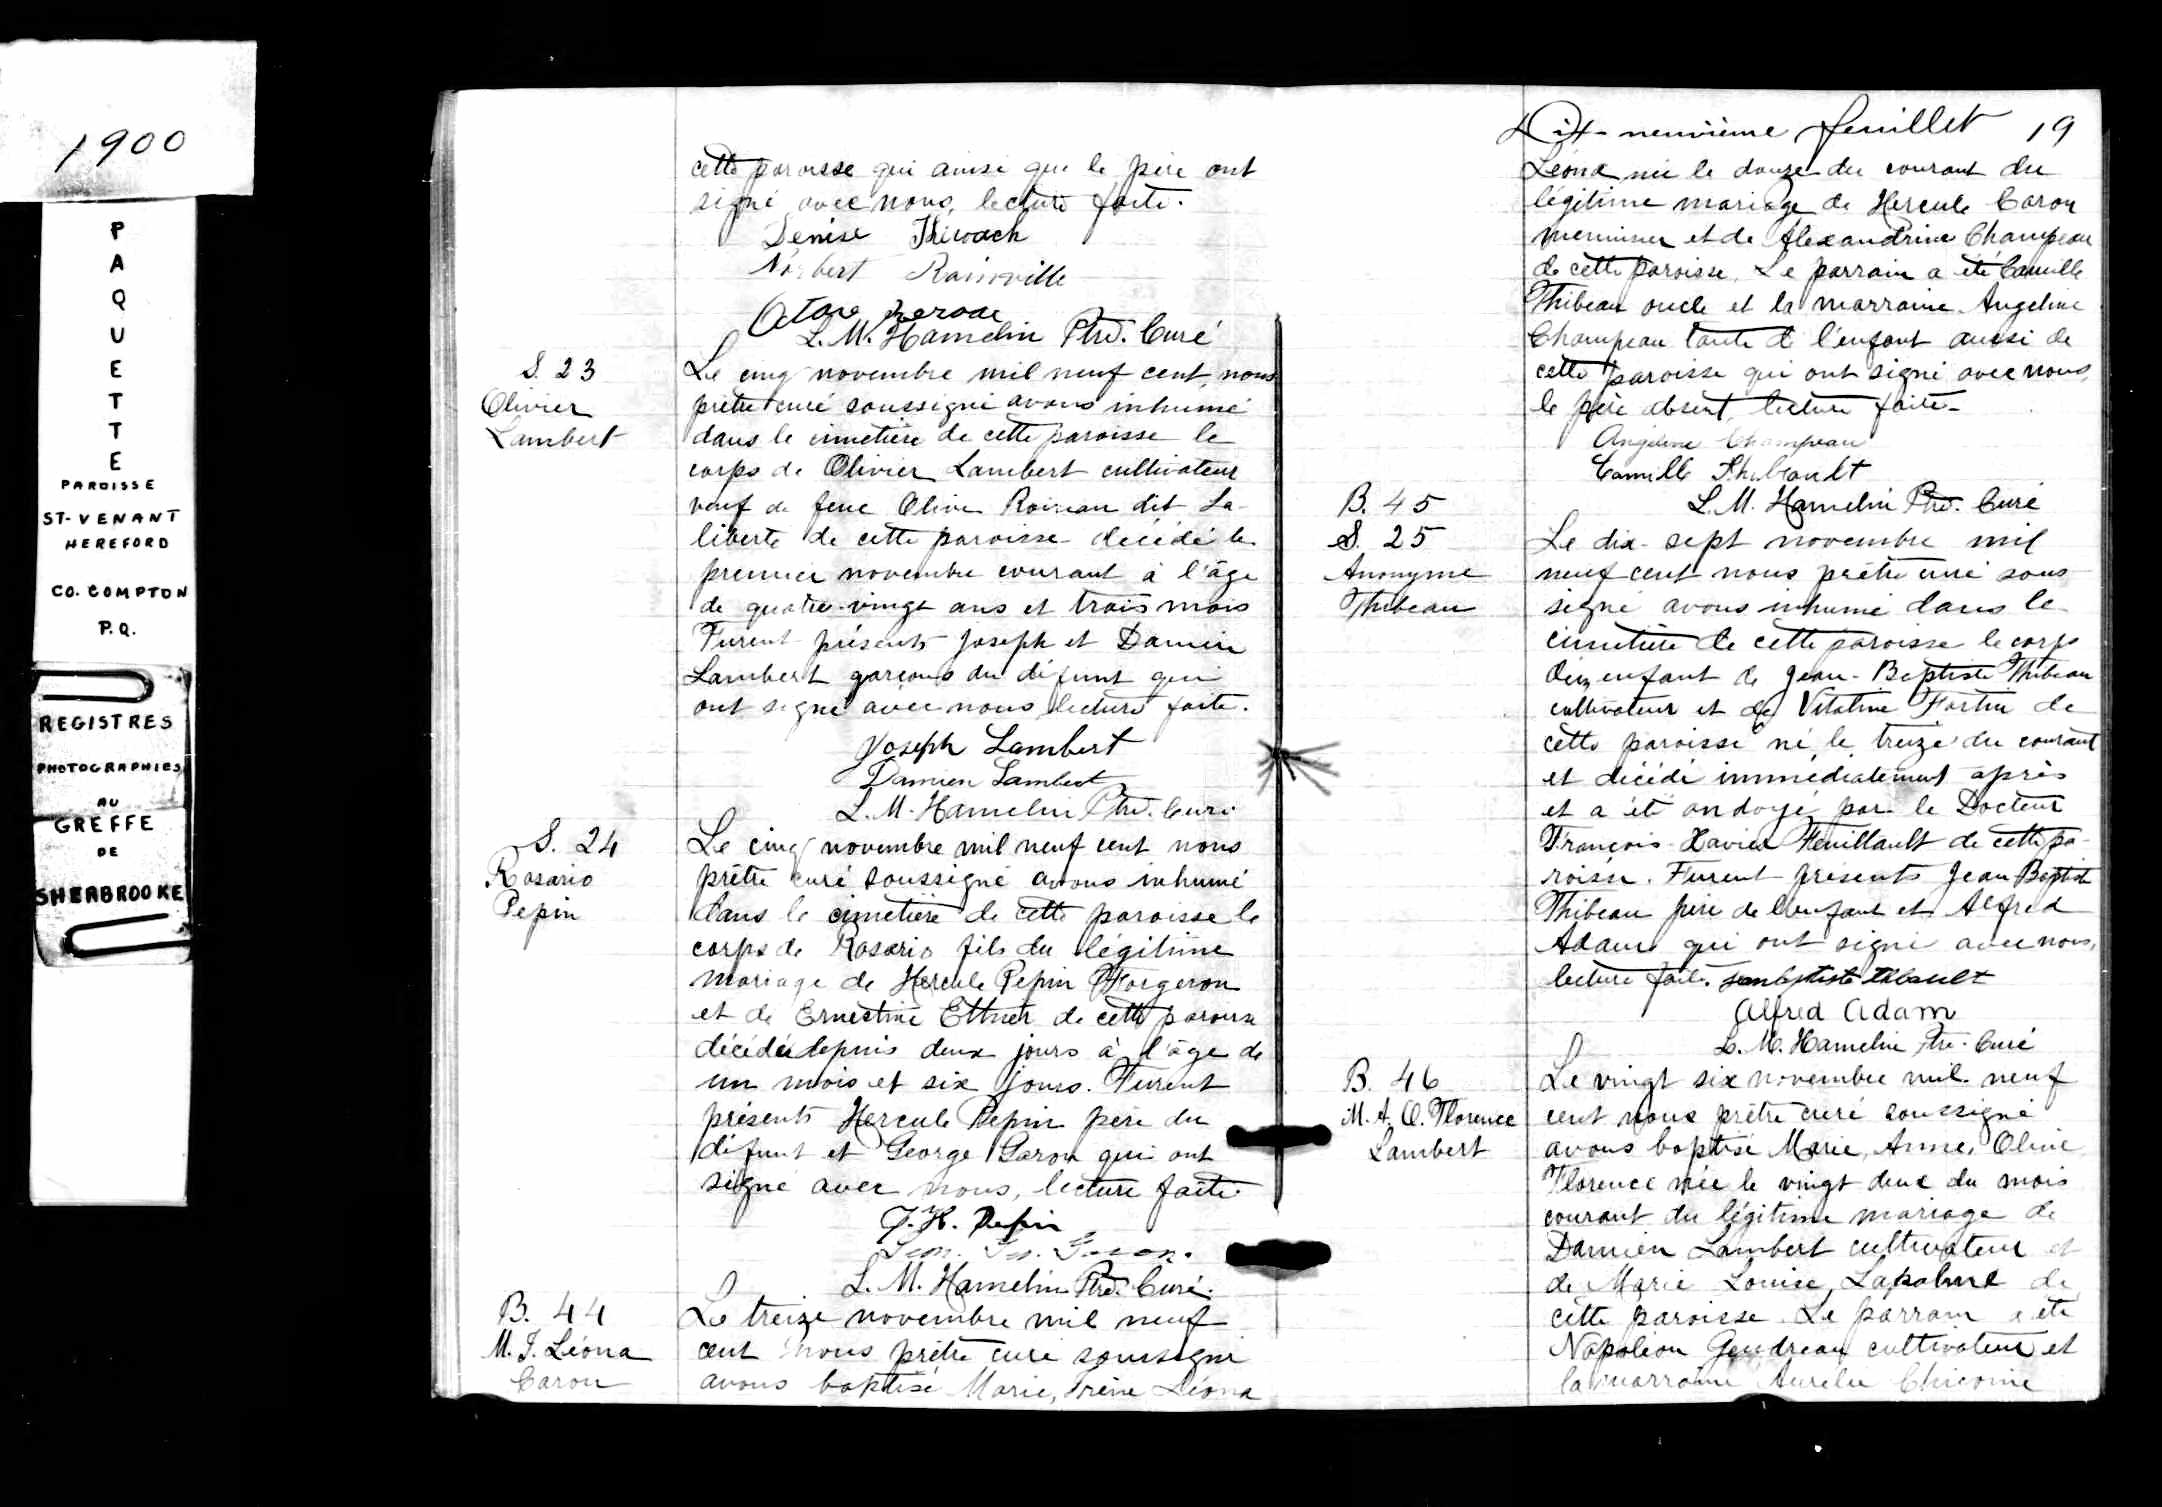 1900
PAQUETTE
PAROISSE
ST-VENANT
HEREFORD
CO. COMPTON
P.Q.
REGISTRES
PHOTOGRAPHIES
AU
GREFFE
DE
SHERBROOKE
cette paroisse qui ainsi que le père ont
signé avec nous, lecture faite.
Denise
Norbert Rainville
Octave
L. M. Hamelin Ptre. Curé
S. 23
Olivier
Lambert
Le cinq novembre mil neuf cent, nous
prêtre curé soussigné avons inhumé
dans le cimetière de cette paroisse le
corps de Olivier Lambert cultivateur
veuf de feue Olive dit La-
liberté de cette paroisse décédé le
premier novembre courant à l'âge
de quatre-vingt ans et trois mois
Furent présents Joseph et Damien
Lambert garçons du défunt qui
ont signé avec nous lecture faite.
Joseph Lambert
Damien Lambert
L. M. Hamelin Ptre. Curé
S. 24
Rosario
Pepin
Le cinq novembre mil neuf cent nous
prêtre curé soussigné avons inhumé
dans le cimetière de cette paroisse le
corps de Rosario fils du légitime
mariage de Hercule Pepin Forgeron
et de Ernestine Ettner de cette paroisse
décédé depuis deux jours à l'âge de
un mois et six jours. Furent
présents Hercule Pepin père du
défunt et George Garon qui ont
signé avec nous, lecture faite.
J. H. Pepin
L. M. Hamelin Ptre. Curé.
B. 44
M. I. Léona
Caron
Le treize novembre mil neuf
cent nous prêtre curé soussigné
avons baptisé Marie, Irène Léona
Dix-neuvième feuillet 19
Léona née le douze du courant du
légitime mariage de Hercule Caron
menuisier et de Alexandrine Champeau
de cette paroisse. Le parrain a été Camille
Thibeau oncle et la marraine Angeline
Champeau tante de l'enfant aussi de
cette paroisse qui ont signé avec nous,
le père absent, lecture faite.
Angeline Champeau
Camille Thibeault
L. M. Hamelin Ptre. Curé
B. 45
S. 25
Anonyme
Thibeau
Le dix-sept novembre mil
neuf cent nous prêtre curé sous
signé avons inhumé dans le
cimetière de cette paroisse le corps
d'un enfant de Jean-Baptiste Thibeau
cultivateur et de Vitaline Fortin de
cette paroisse né le treize du courant
et décédé immédiatement après
et a été ondoyé par le Docteur
François-Xavier Feuillault de cette pa-
roisse. Furent présents Jean Baptiste
Thibeau père de l'enfant et Alfred
Adam qui ont signé avec nous,
lecture faite. Jean baptiste thibault
Alfred Adam
L. M. Hamelin Ptre. Curé
B. 46
M. A. O. Florence
Lambert
Le vingt six novembre mil neuf
cent nous prêtre curé soussigné
avons baptisé Marie, Anne, Olive
Florence née le vingt deux du mois
courant du légitime mariage de
Damien Lambert cultivateur et
de Marie Louise Lapalme de
cette paroisse. Le parrain a été
Napoléon Gendreau cultivateur et
la marraine Aurélie Chicoine